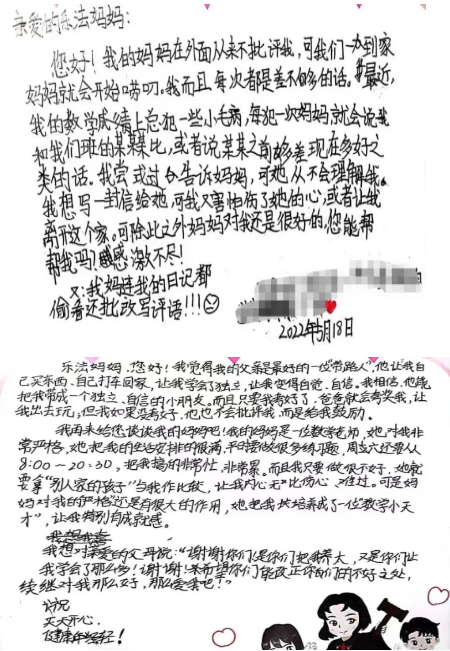 亲爱的乐法妈妈：
您好！我的妈妈在外面从来不批评我，可我们一办到家
妈妈就会开始唠叨。我而且每次都是差不多的话。最近，
我的数学成绩上总犯一些小毛病，每犯一次妈妈就会说我
和我们班的某某比，或者说某某之前够差现在多好之
类的话。我尝试过告诉妈妈，可她从不会理解我。
我想写一封信给她，可我又害怕伤了她的心，或者让我
离开这个家。可除此之外妈妈对我还是很好的，您能帮
帮我吗？感感激不尽！
又：我妈连我的日记都
偷看还批改写评语!!!
2022年5月18日
乐法妈妈，您好！我觉得我的父亲是最好的一位“带路人”，他让我自
己买东西，自己打车回家，让我学会了独立，让我变得自觉、自信。我相信，他能
把我带成一个独立、自信的小朋友。而且只要我考好了，爸爸就会夸奖我，让
我出去玩；但我如果没考好，他也不会批评我，而是给我鼓励。
我再来给您谈谈我的妈妈吧！我的妈妈是一位数学老师，她对我非
常严格，她把我的生活安排的很满，平日要做很多练习题，周六还要从
8:00～20:30，把我搞的非常忙，非常累。而且我只要做得不好，她就
要拿“别人家的孩子”与我作比较，让我内心无比伤心、难过。可是妈
妈对我的严格还是有很大的作用，她把我培养成了一位“数学小天
才”，让我特别有成就感。
我想
我想对亲爱的父母说：“谢谢你们！是你们把我养大，又是你们让
我学会了那么多！谢谢！希望你们能改正你们的不好之处，
继续对我那么好，那么爱我吧！”
祝
天天开心，
健康年轻！